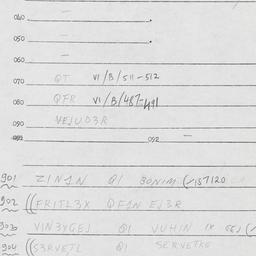 040 —
050 —
060 —
070 QT VI/B/511-512
080 QFR VI/B/487-491
090 VEJUD3R
092 —
901 ZIN1N Q1 BONIM (/137120
902 ((FRITL3X QF1N EJ3R
903 VIN3YGEJ Q1 VUHIN
904 ((S3RVETL Q1 SERVETXE